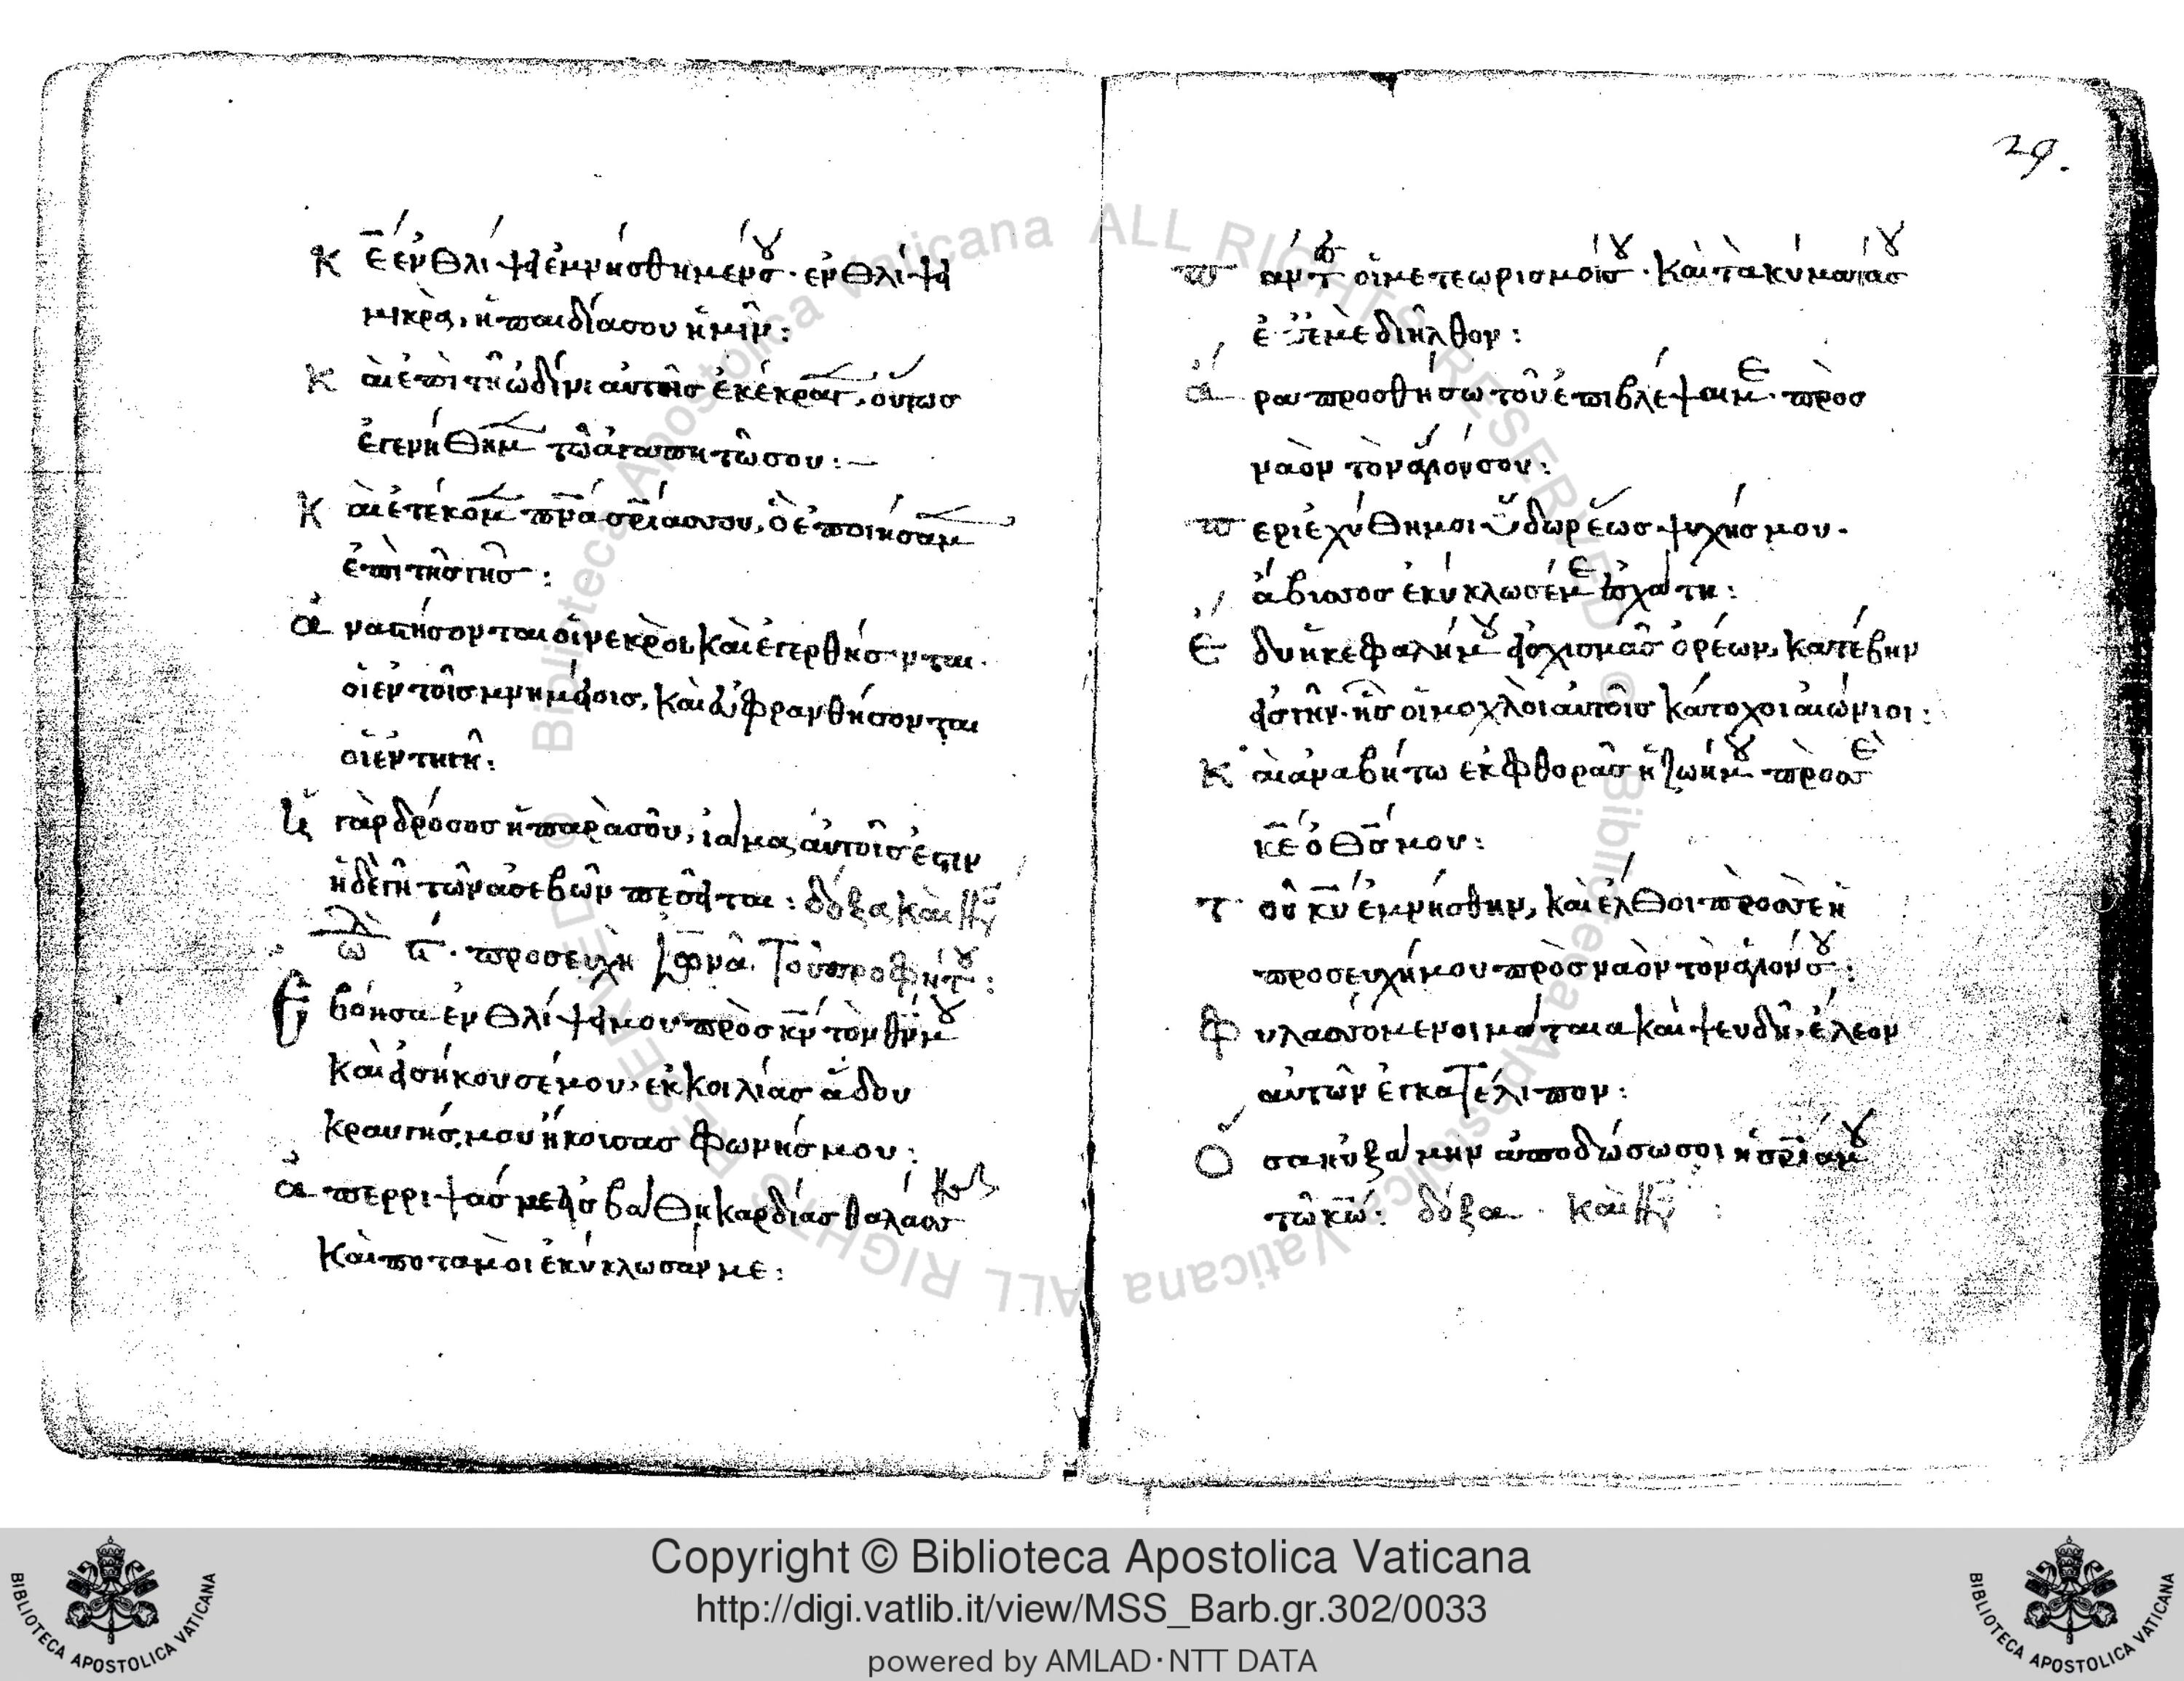 Κε̄ ἐν θλίψει ἐμνήσθημέν σου· ἐν θλίψει
μικρᾷ, ἡ παιδία σου ἡμῖν:
Καὶ ἐπὶ τῇ ὠδῖνι αὐτῆς ἐκέκραξεν, οὕτως
ἐγενήθημεν τῷ ἀγαπητῷ σου:—
Καὶ ἐτέκομεν πνᾱ σρ̄ίας σου, ὃ ἐποιήσαμεν
ἐπὶ τῆς γῆς:
Ἀναστήσονται οἱ νεκροὶ, καὶ ἐγερθήσονται
οἱ ἐν τοῖς μνημείοις, καὶ εὐφρανθήσονται
οἱ ἐν τῇ γῇ:
Ἡ γὰρ δρόσος ἡ παρὰ σοῦ, ἴαμα αὐτοῖς ἐστιν
ἡ δὲ γῆ τῶν ἀσεβῶν πεσεῖται: δόξα καὶ νῦν
προσευχὴ Ἰωνᾶ τοῦ προφήτου:
Ἐβόησα ἐν θλίψει μου πρὸς κν̄ τὸν θν̄ μου
καὶ εἰσήκουσέ μου, ἐκ κοιλίας ᾅδου
κραυγῆς μου ἤκουσας φωνῆς μου:
Ἀπέρριψάς με εἰς βάθη καρδίας θαλάσσης
καὶ ποταμοὶ ἐκύκλωσάν με:
29.
Πάντες οἱ μετεωρισμοί σου· καὶ τὰ κύματά σου
ἐπ' ἐμὲ διῆλθον:
Ἆρα προσθήσω τοῦ ἐπιβλέψαι με· πρὸς
ναὸν τὸν ἅγιόν σου:
Περιεχύθη μοι ὕδωρ ἕως ψυχῆς μου·
ἄβυσσος ἐκύκλωσέ με ἐσχάτη:
Ἔδυ ἡ κεφαλή μου εἰς σχισμὰς ὀρέων, κατέβην
εἰς γῆν· ἧς οἱ μοχλοὶ αὐτοῖς κάτοχοι αἰώνιοι:
Καὶ ἀναβήτω ἐκ φθορᾶς ἡ ζωή μου πρὸς σὲ
κε̄ ὁ θς̄ μου:
Τοῦ κῡ ἐμνήσθην, καὶ ἔλθοι πρὸς σὲ ἡ
προσευχή μου πρὸς ναὸν τὸν ἅγιόν σου:
Φυλασσόμενοι μάταια καὶ ψευδῆ, ἔλεον
αὐτῶν ἐγκατέλιπον:
Ὅσα ηὐξάμην ἀποδώσω σοι ἡ σρ̄ία μου
τῷ κω̄: δόξα καὶ νῦν:
Copyright © Biblioteca Apostolica Vaticana
http://digi.vatlib.it/view/MSS_Barb.gr.302/0033
powered by AMLAD·NTT DATA
BIBLIOTECA APOSTOLICA VATICANA
BIBLIOTECA APOSTOLICA VATICANA